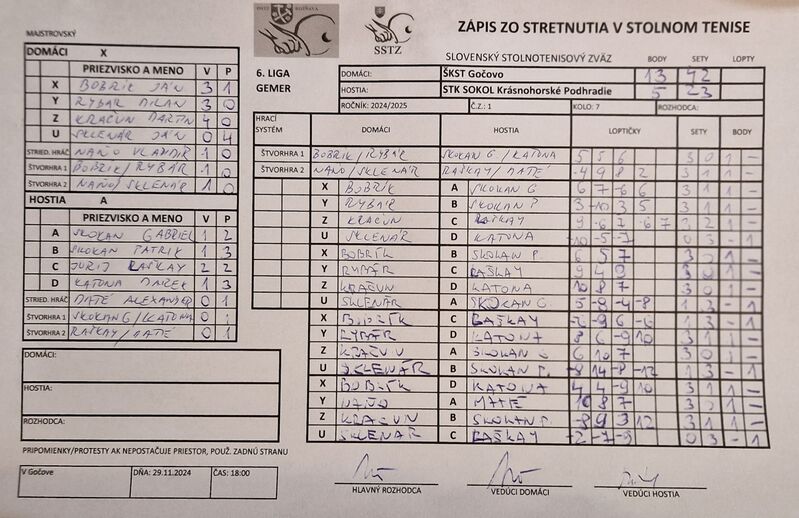 ZÁPIS ZO STRETNUTIA V STOLNOM TENISE
MAJSTROVSKÝ
SSTZ
SLOVENSKÝ STOLNOTENISOVÝ ZVÄZ BODY SETY LOPTY
DOMÁCI X
6. LIGA DOMÁCI: ŠKST Gočovo 13 42
GEMER HOSTIA: STK SOKOL Krásnohorské Podhradie 5 23
ROČNÍK: 2024/2025 Č.Z.: 1 KOLO: 7 ROZHODCA:
PRIEZVISKO A MENO V P
X BOBRÍK JÁN 3 1
Y RYBÁR MILAN 3 0
Z KRAČUN MARTIN 4 0
U SKLENÁR JÁN 0 4
STRIED. HRÁČ NAŇO VLADIMÍR 1 0
ŠTVORHRA 1 BOBRÍK/RYBÁR 1 0
ŠTVORHRA 2 NAŇO/SKLENÁR 1 0
HOSTIA A
PRIEZVISKO A MENO V P
A SKOKAN GABRIEL 1 2
B SKOKAN PATRIK 1 3
C JURIJ RAŠKAY 2 2
D KATONA 1 3
STRIED. HRÁČ MATÉ ALEXANDER 0 1
ŠTVORHRA 1 SKOKAN G/KATONA 0 1
ŠTVORHRA 2 RAŠKAY/MATÉ 0 1
HRACÍ SYSTÉM DOMÁCI HOSTIA LOPTIČKY SETY BODY
ŠTVORHRA 1 BOBRÍK/RYBÁR SKOKAN G/KATONA 5 5 6 3 0 1 -
ŠTVORHRA 2 NAŇO/SKLENÁR RAŠKAY/MATÉ -4 9 8 2 3 1 1 -
X BOBRÍK A SKOKAN G 6 -7 6 6 3 1 1 -
Y RYBÁR B SKOKAN P. 3 -10 3 5 3 1 1 -
Z KRAČUN C RAŠKAY 9 -6 7 -6 7 3 2 1 -
U SKLENÁR D KATONA -10 -5 -7 0 3 - 1
X BOBRÍK B SKOKAN P. 6 5 7 3 0 1 -
Y RYBÁR C RAŠKAY 9 4 9 3 0 1 -
Z KRAČUN D KATONA 10 8 7 3 0 1 -
U SKLENÁR A SKOKAN G. 5 -9 -4 -8 1 3 - 1
X BOBRÍK C RAŠKAY 1 3 - 1
Y RYBÁR D KATONA 8 6 -9 10 3 1 1 -
Z KRAČUN A SKOKAN G 6 10 7 3 0 1 -
U SKLENÁR B SKOKAN P. -8 14 -8 -12 1 3 - 1
X BOBRÍK D KATONA 4 4 -9 10 3 1 1 -
Y NAŇO A MATÉ 10 8 7 3 0 1 -
Z KRAČUN B SKOKAN P. -8 9 3 12 3 1 1 -
U SKLENÁR C RAŠKAY -2 -7 -9 0 3 - 1
DOMÁCI:
HOSTIA:
ROZHODCA:
PRIPOMIENKY/PROTESTY AK NEPOSTAČUJE PRIESTOR, POUŽ. ZADNÚ STRANU
V Gočove DŇA: 29.11.2024 ČAS: 18:00
HLAVNÝ ROZHODCA VEDÚCI DOMÁCI VEDÚCI HOSTIA